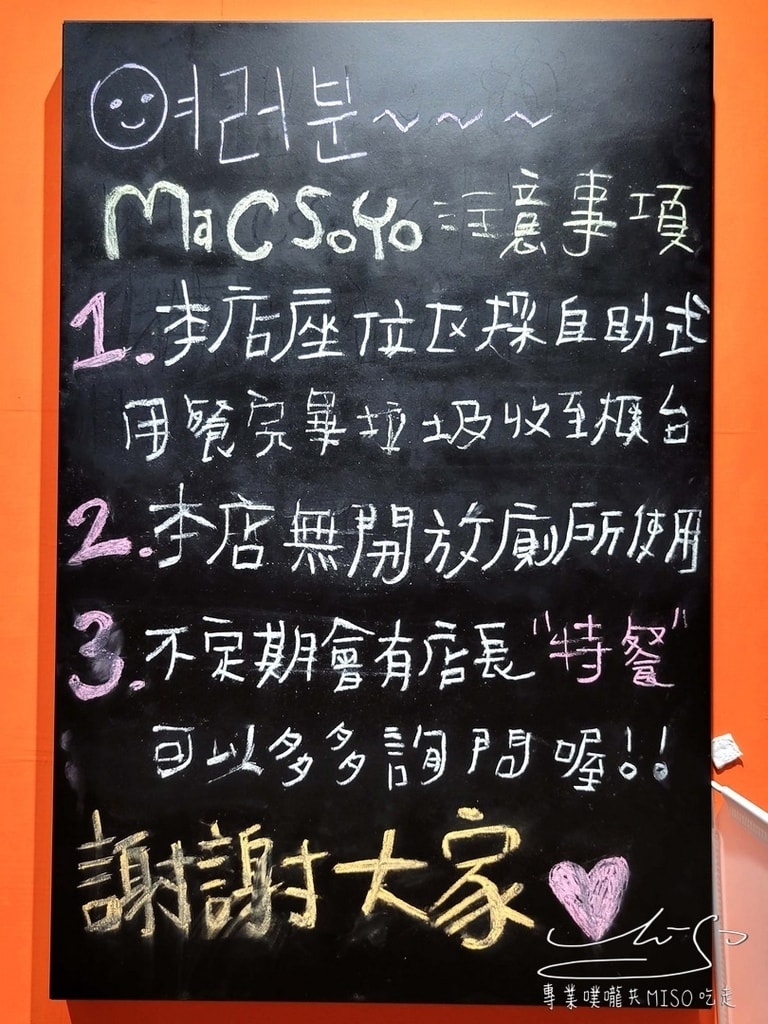 여러분~~~
MacSoYo 注意事項
1. 本店座位区採自助式
用餐完畢垃圾收至櫃台
2. 本店無開放廁所使用
3. 不定期會有店長"特餐"
可以多多詢問喔!!
謝謝大家
MISO
專業噗嚨共MISO吃走